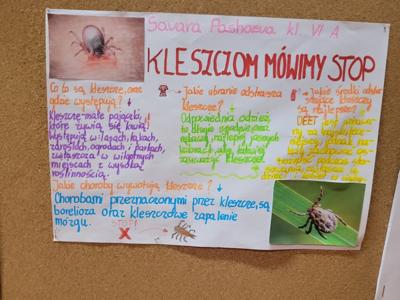 Savara Pashaeva kl. VI A
KLESZCIOM MÓWIMY STOP
Co to są kleszcze, oraz
gdzie występują? ↓
Kleszcze - małe pajęczaki,
które żywią się krwią,
występują w lasach, łąkach,
zaroślach, ogrodach i parkach,
zwłaszcza w wilgotnych
miejscach z wysoką
roślinnością.
→ Jakie ubranie odstrasza
kleszcze? ↓
Odpowiednia odzież
to długie spodnie oraz
rękawy, najlepiej jasnych
kolorach, aby łatwiej
zauważyć kleszcze.
→ Jakie środki odstra-
szające kleszczy
są najlepsze?
DEET jest
Jakie choroby wywołują kleszcze? ↓
Chorobami przeznaczonymi przez kleszcze, są
borelioza oraz kleszczowe zapalenie
mózgu.
STOP!